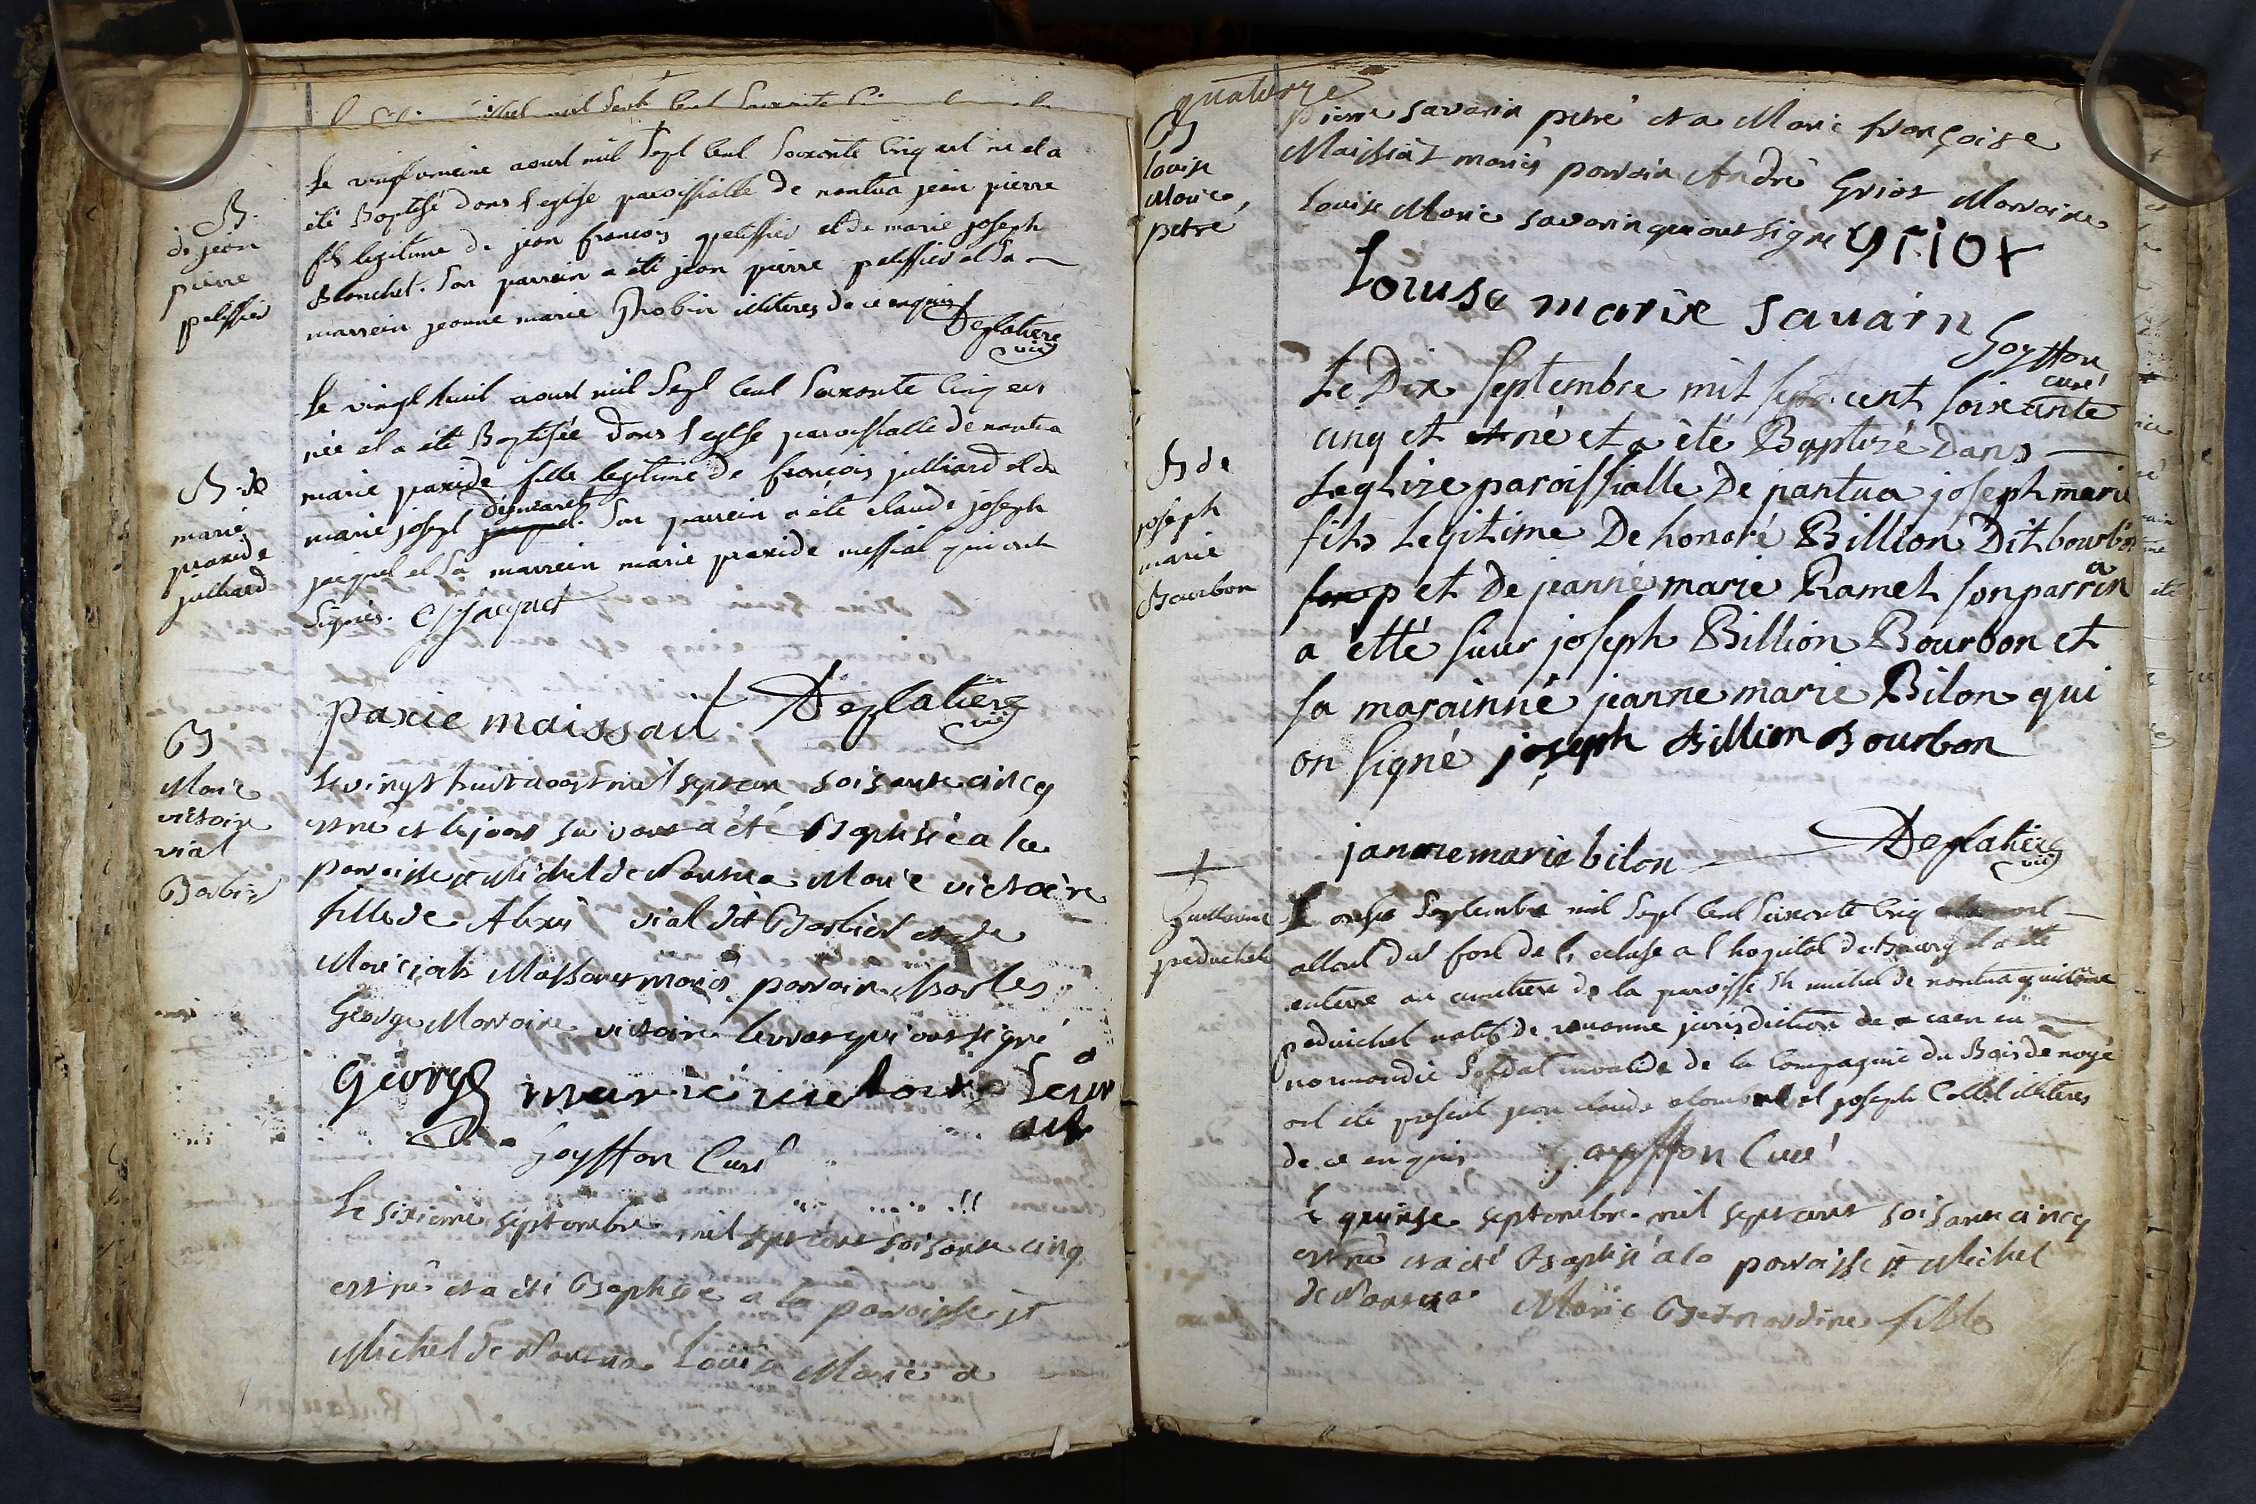 B.
de jean
pierre
pelissier
Le vingt aoust mil Sept Cent Soixante Cinq est né et a
été Baptisé dans l'eglise paroissialle de nantua jean pierre
fils legitime de jean françois pelissier et de marie joseph
Blanchet. Son parrein a été jean pierre pelissier et Sa
marrein jeanne marie Robin illiteres de ce enquis
Deglatiere
vic
B. de
marie
praxide
julliard
Le vingt huit aoust mil Sept Cent Soixante Cinq est
née et a été Baptisée dans l'eglise paroissialle de nantua
marie praxide fille legitime de françois julliard et de
marie joseph demaret. Son parrein a été claude joseph
jacquet et Sa marrein marie praxide messiat qui ont
Signés. C J Jacquet
paxie maissait Deglatiere
vic
B
Marie
victoire
vial
Barbier
Le vingt huit aoost mil sept cen soisante cincq
est né et le jour suivant a été Baptisée a la
paroisse st Michel de Nantua Marie victoire
fille de Alexis vial dit Barbier et de
Marie mariés parrain Charles
George Marraine victoire qui ont signé
George marie victoire
Goyffon Curé
Le sixieme septembre mil sept cent soisante cinq
est né et a été Baptisée a la paroisse st
Michel de Nantua Louise Marie a
quatorze
B
Louise
Marie
petré
pierre savarin petré et a Marie françoise
Maissiat mariés parrain André Griot Marraine
Louise Marie savarin qui ont signé griot
Louise marie Savarin
Goyffon
curé
B de
joseph
marie
Bourbon
Le Dix Septembre mil sept cent soixante
cinq et et né et a été Baptizé Dans
Leglize paroissialle De nantua joseph marie
fils Legitime De honoré Billion Dit bourbon
et De jeanne marie Ramel son parrin
a étté sieur joseph Billion Bourbon et
sa marainne jeanne marie Bilon qui
on signé joseph Billion Bourbon
janne marie bilon Deglatiere
vic
Guillaume
peduichel
L onse Septembre mil Sept Cent Soixante Cinq
allant du fort de l'ecluse a l'hopital de Bourg et a été
enterré au cimetiere de la paroisse St michel de nantua guillome
peduichel natif de jurisdiction de caen en
normandie Soldat invalide de la Compagnie du Bois de
ont été present jean claude et joseph Collet illiteres
de ce enquis Goyffon Curé
Le quinse septembre mil sept cent soisante cincq
est né et a été Baptisé a la paroisse st Michel
de Nantua Marie Bernardine fille